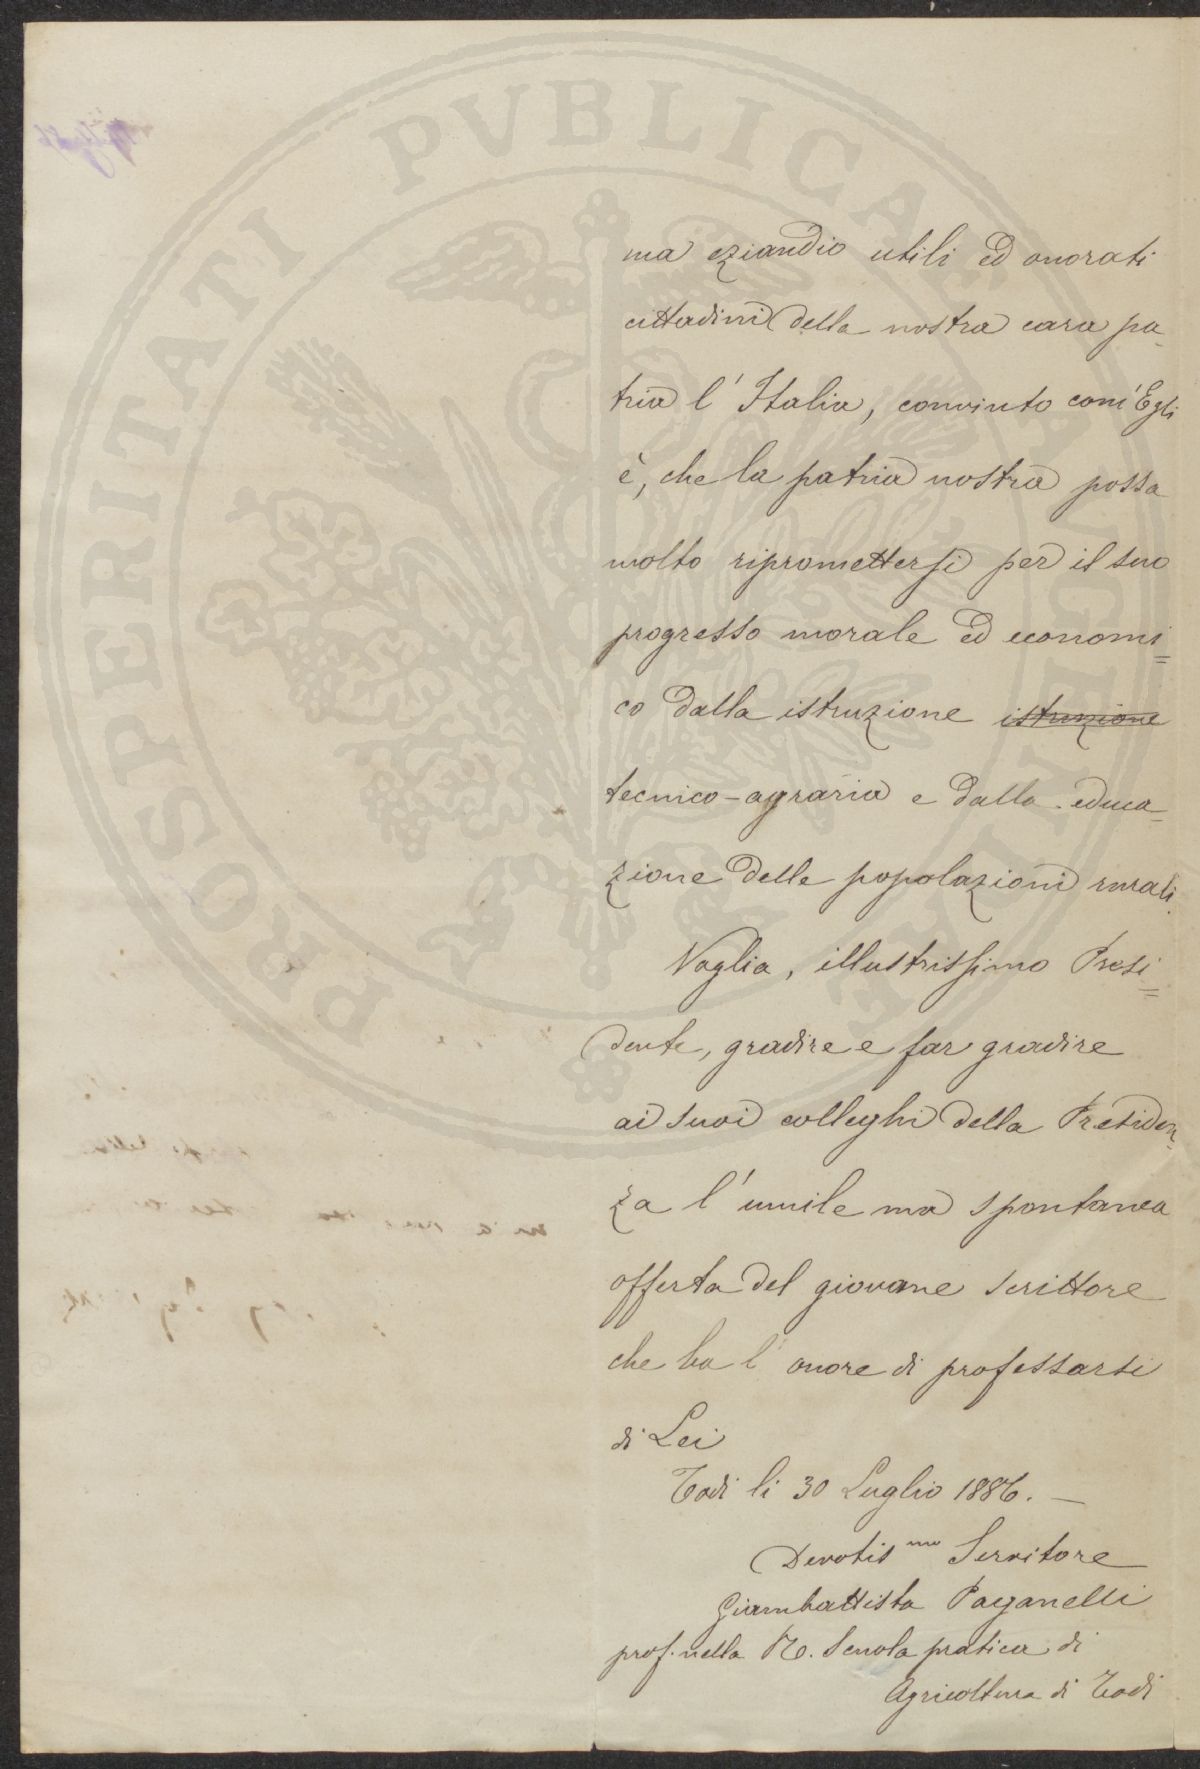 PROSPERITATI PVBLICAE AVGENDAE
ma eziandio utili ed onorati
cittadini della nostra cara pa-
tria l'Italia, convinto com'Egli
è, che la patria nostra possa
molto ripromettersi per il suo
progresso morale ed economi=
co dalla istruzione istruzione
tecnico-agraria e dalla educa-
zione delle popolazioni rurali.
Voglia, illustrissimo Presi=
dente, gradire e far gradire
ai suoi colleghi della Presiden-
za l'umile ma spontanea
offerta del giovane scrittore
che ha l'onore di professarsi
di Lei
Todi li 30 Luglio 1886. —
Devotis mo Servitore
Giambattista Paganelli
prof. nella R. Scuola pratica di
Agricoltura di Todi